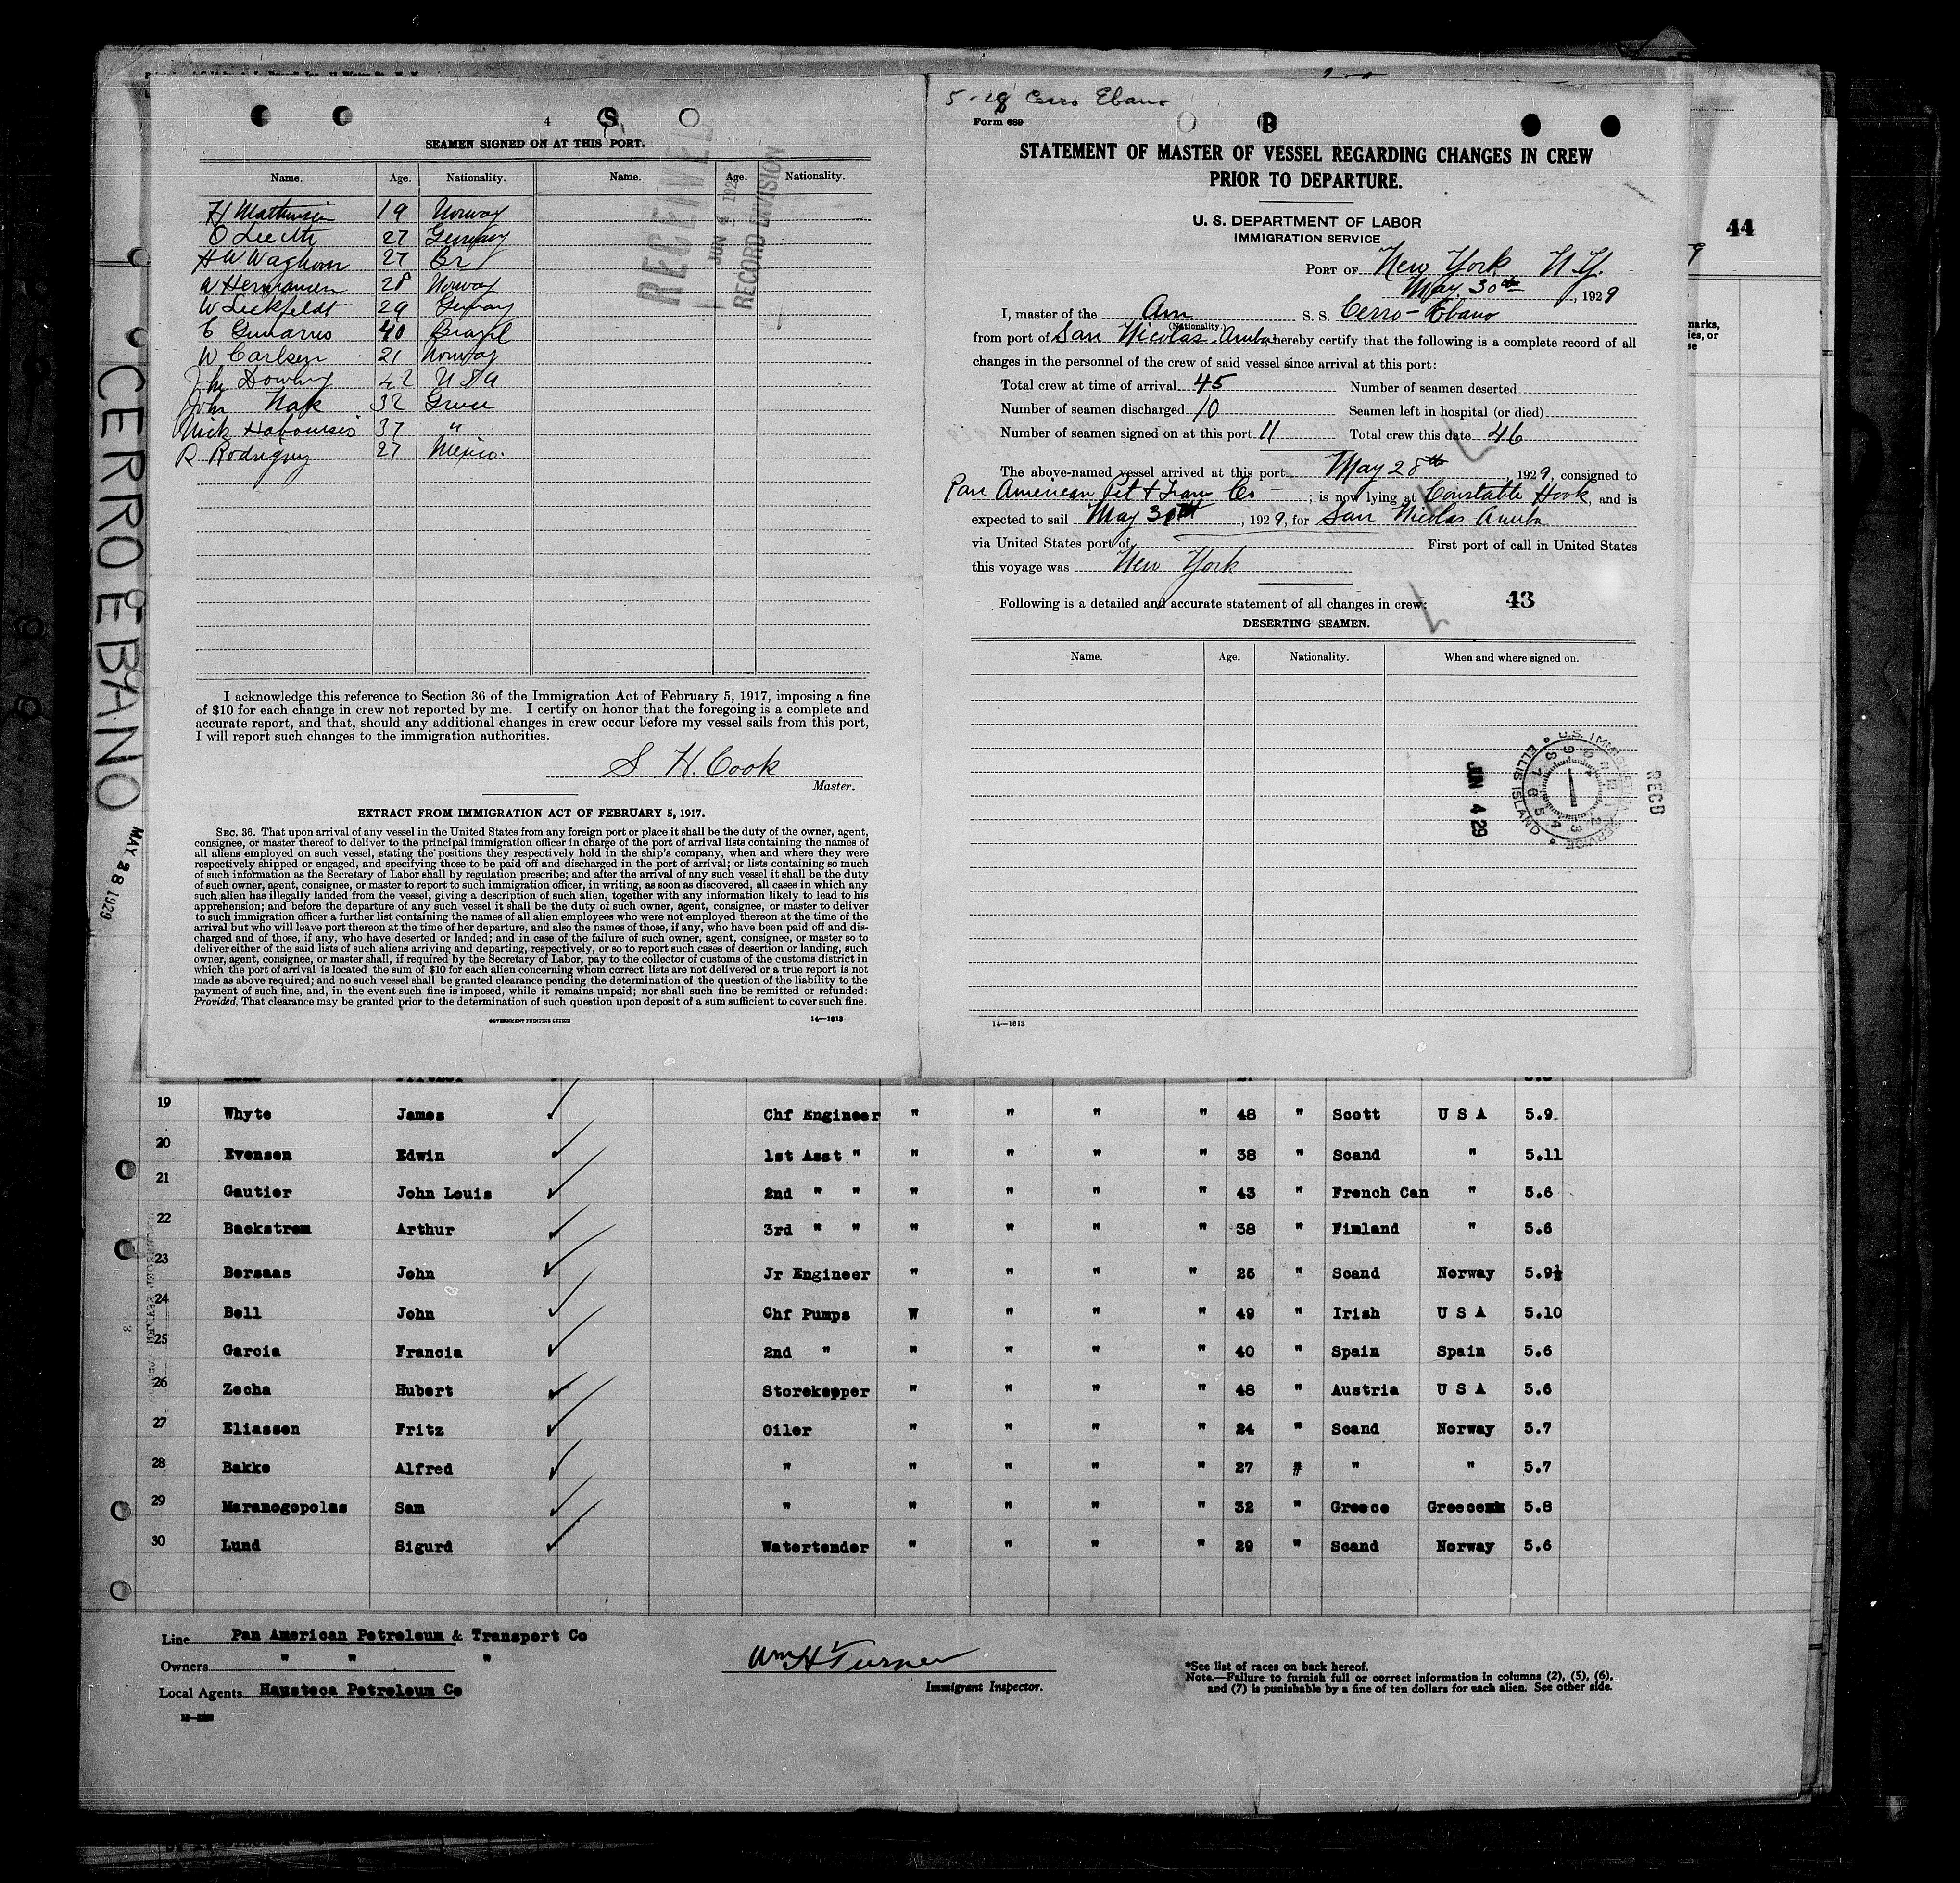 4
SEAMEN SIGNED ON AT THIS PORT.
Name. Age. Nationality. Name. Age. Nationality.
H 19 Norway
O 27 Germany
H W Waghorn 27 Br
W Hermansen 28 Norway
W Lickfeldt 29 Germany
40 Brazil
W Carlsen 21 Norway
Jhn Dowling 42 U S A
John 32 Greece
Nick 37 "
R 27 Mexico.
RECEIVED
JUN 4 192
RECORD DIVISION
I acknowledge this reference to Section 36 of the Immigration Act of February 5, 1917, imposing a fine
of $10 for each change in crew not reported by me. I certify on honor that the foregoing is a complete and
accurate report, and that, should any additional changes in crew occur before my vessel sails from this port,
I will report such changes to the immigration authorities.
S H. Cook
Master.
EXTRACT FROM IMMIGRATION ACT OF FEBRUARY 5, 1917.
SEC. 36. That upon arrival of any vessel in the United States from any foreign port or place it shall be the duty of the owner, agent,
consignee, or master thereof to deliver to the principal immigration officer in charge of the port of arrival lists containing the names of
all aliens employed on such vessel, stating the positions they respectively hold in the ship's company, when and where they were
respectively shipped or engaged, and specifying those to be paid off and discharged in the port of arrival; or lists containing so much
of such information as the Secretary of Labor shall by regulation prescribe; and after the arrival of any such vessel it shall be the duty
of such owner, agent, consignee, or master to report to such immigration officer, in writing, as soon as discovered, all cases in which any
such alien has illegally landed from the vessel, giving a description of such alien, together with any information likely to lead to his
apprehension; and before the departure of any such vessel it shall be the duty of such owner, agent, consignee, or master to deliver
to such immigration officer a further list containing the names of all alien employees who were not employed thereon at the time of the
arrival but who will leave port thereon at the time of her departure, and also the names of those, if any, who have been paid off and dis-
charged and of those, if any, who have deserted or landed; and in case of the failure of such owner, agent, consignee, or master so to
deliver either of the said lists of such aliens arriving and departing, respectively, or so to report such cases of desertion or landing, such
owner, agent, consignee, or master shall, if required by the Secretary of Labor, pay to the collector of customs of the customs district in
which the port of arrival is located the sum of $10 for each alien concerning whom correct lists are not delivered or a true report is not
made as above required; and no such vessel shall be granted clearance pending the determination of the question of the liability to the
payment of such fine, and, in the event such fine is imposed, while it remains unpaid; nor shall such fine be remitted or refunded:
Provided, That clearance may be granted prior to the determination of such question upon deposit of a sum sufficient to cover such fine.
GOVERNMENT PRINTING OFFICE 14—1613
CERRO EBANO
MAY 28 1929
5-28 Cerro Ebano
Form 689
STATEMENT OF MASTER OF VESSEL REGARDING CHANGES IN CREW
PRIOR TO DEPARTURE.
U. S. DEPARTMENT OF LABOR
IMMIGRATION SERVICE
PORT OF New York N.Y.
May 30th, 1929
I, master of the Am S. S. Cerro-Ebano
(Nationality.)
from port of San Nicolas Aruba hereby certify that the following is a complete record of all
changes in the personnel of the crew of said vessel since arrival at this port:
Total crew at time of arrival 45 Number of seamen deserted
Number of seamen discharged 10 Seamen left in hospital (or died)
Number of seamen signed on at this port 11 Total crew this date 46
The above-named vessel arrived at this port May 28th, 1929, consigned to
Pan American Pet & Tran Co; is now lying at Constable Hook, and is
expected to sail May 30th, 1929, for San Nicolas Aruba
via United States port of First port of call in United States
this voyage was New York
Following is a detailed and accurate statement of all changes in crew:
43
DESERTING SEAMEN.
Name. Age. Nationality. When and where signed on.
JUN 4 29
U.S. IMMIGRATION SERVICE ELLIS ISLAND
RECD
14—1613
44
9
narks,
ies, or
se
19 Whyte James Chf Engineer " " " " 48 " Scott U S A 5.9.
20 Evensen Edwin 1st Asst " " " " " 38 " Scand " 5.11
21 Gautier John Louis 2nd " " " " " " 43 " French Can " 5.6
22 Backstrom Arthur 3rd " " " " " " 38 " Finland " 5.6
23 Bersaas John Jr Engineer " " " " 26 " Scand Norway 5.9½
24 Bell John Chf Pumps W " " " 49 " Irish U S A 5.10
25 Garcia Francia 2nd " " " " " 40 " Spain Spain 5.6
26 Zecha Hubert Storekepper " " " " 48 " Austria U S A 5.6
27 Eliassen Fritz Oiler " " " " 24 " Scand Norway 5.7
28 Bakke Alfred " " " " " 27 # " " 5.7
29 Maranogopolas Sam " " " " " 32 " Greece Greece 5.8
30 Lund Sigurd Watertender " " " " 29 " Scand Norway 5.6
Line Pan American Petroleum & Transport Co
Owners " " "
Local Agents Hausteca Petroleum Co
Wm H Turner
Immigrant Inspector.
*See list of races on back hereof.
Note.—Failure to furnish full or correct information in columns (2), (5), (6),
and (7) is punishable by a fine of ten dollars for each alien. See other side.